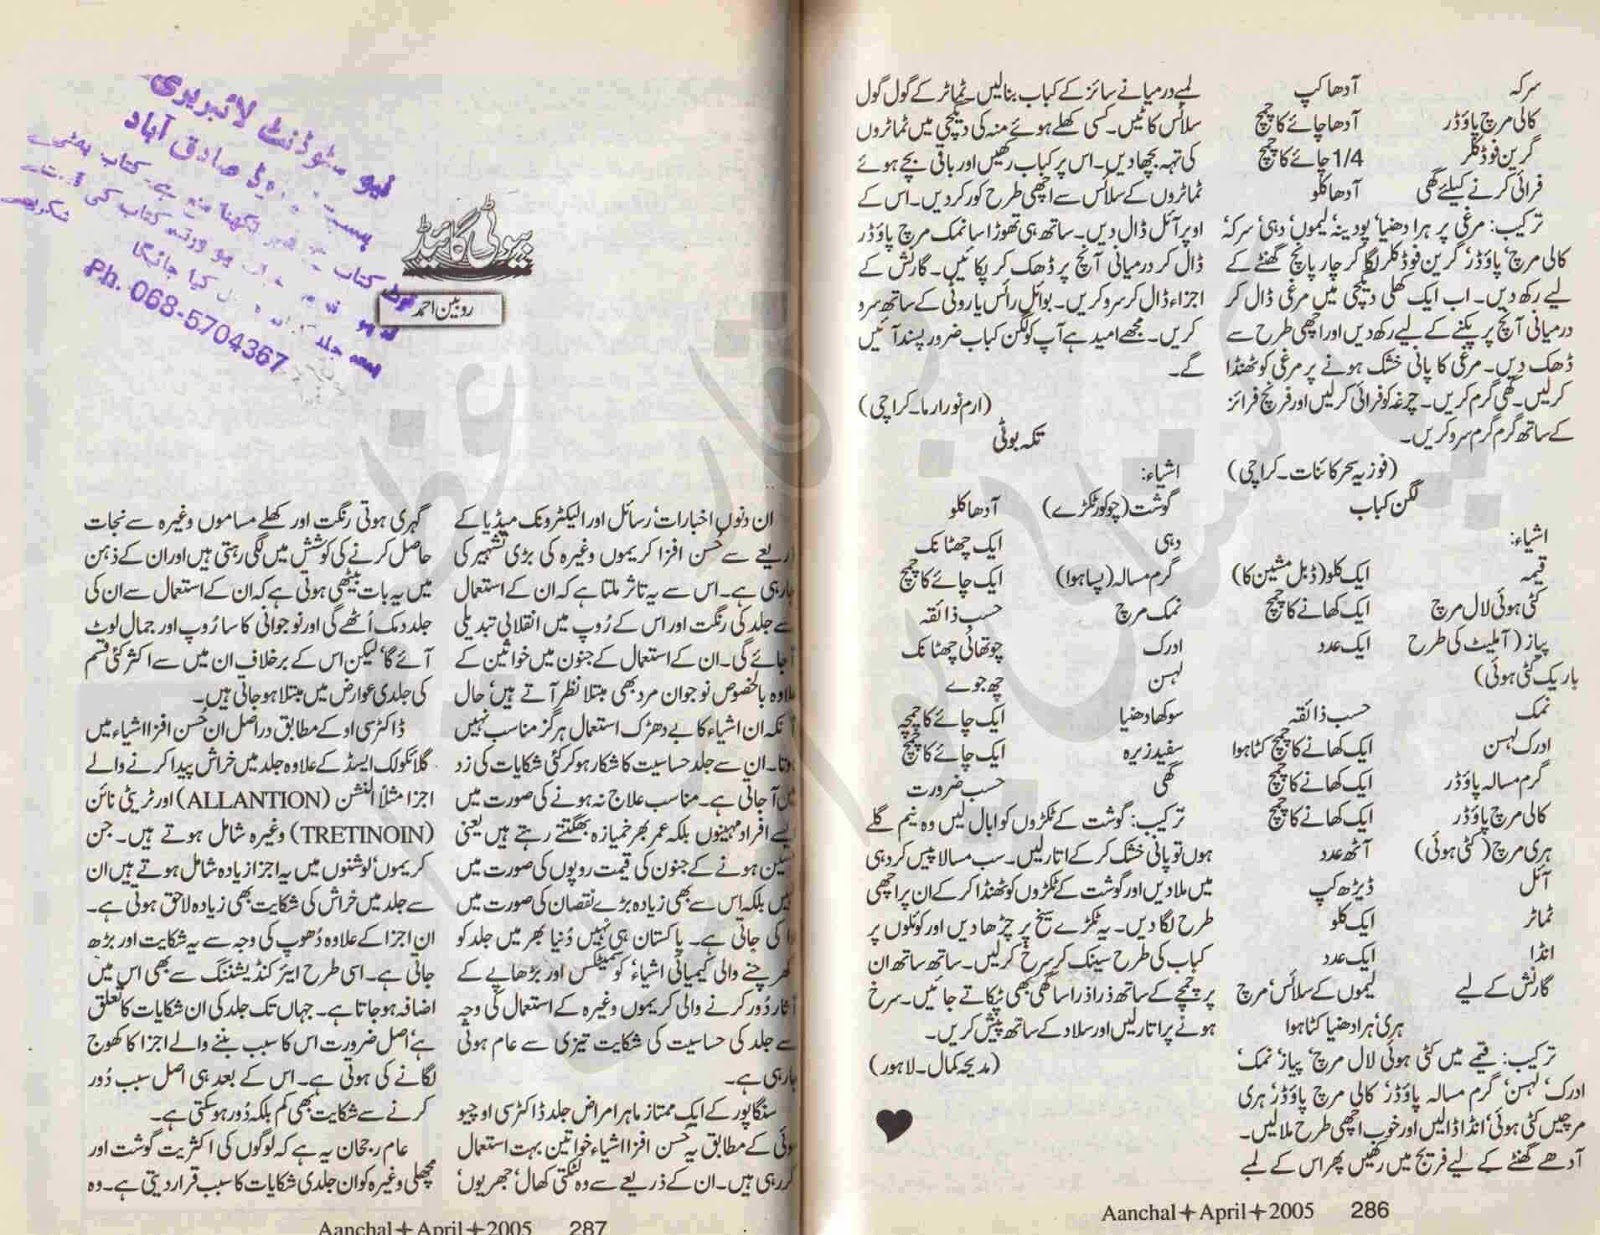 سرکہ آدھا کپ
کالی مرچ پاؤڈر آدھا چائے کا چمچ
گرین فوڈ کلر 1/4 چائے کا چمچ
فرائی کرنے کیلئے گھی آدھا کلو
ترکیب: مرغی پر ہرا دھنیا' پودینہ' لیموں' دہی' سرکہ'
کالی مرچ' پاؤڈر' گرین فوڈ کلر لگا کر چار پانچ گھنٹے کے
لیے رکھ دیں۔ اب ایک کھلی دیگچی میں مرغی ڈال کر
درمیانی آنچ پر پکنے کے لیے رکھ دیں اور اچھی طرح سے
ڈھک دیں۔ مرغی کا پانی خشک ہونے پر مرغی کو ٹھنڈا
کرلیں۔ گھی گرم کریں۔ چرغہ کو فرائی کرلیں اور فرنچ فرائز
کے ساتھ گرم گرم سرو کریں۔
(فوزیہ سحر کائنات۔ کراچی)
لگن کباب
اشیاء:
قیمہ ایک کلو (ڈبل مشین کا)
کٹی ہوئی لال مرچ ایک کھانے کا چمچ
پیاز (آملیٹ کی طرح ایک عدد
باریک کٹی ہوئی)
نمک حسب ذائقہ
ادرک لہسن ایک کھانے کا چمچ کٹا ہوا
گرم مسالہ پاؤڈر ایک کھانے کا چمچ
کالی مرچ پاؤڈر ایک کھانے کا چمچ
ہری مرچ (کٹی ہوئی) آٹھ عدد
آئل ڈیڑھ کپ
ٹماٹر ایک کلو
انڈا ایک عدد
گارنش کے لیے لیموں کے سلائس' مرچ
ہری' ہرا دھنیا کٹا ہوا
ترکیب: قیمے میں کٹی ہوئی لال مرچ' پیاز' نمک'
ادرک' لہسن' گرم مسالہ پاؤڈر' کالی مرچ پاؤڈر' ہری
مرچیں کٹی ہوئی' انڈا ڈالیں اور خوب اچھی طرح ملالیں۔
آدھے گھنٹے کے لیے فریج میں رکھیں پھر اس کے لمبے
لمبے درمیانے سائز کے کباب بنالیں۔ ٹماٹر کے گول گول
سلائس کاٹیں۔ کسی کھلے ہوئے منہ کی دیگچی میں ٹماٹروں
کی تہہ بچھادیں۔ اس پر کباب رکھیں اور باقی بچے ہوئے
ٹماٹروں کے سلائس سے اچھی طرح کور کردیں۔ اس کے
اوپر آئل ڈال دیں۔ ساتھ ہی تھوڑا سا نمک مرچ پاؤڈر
ڈال کر درمیانی آنچ پر ڈھک کر پکائیں۔ گارنش کے
اجزاء ڈال کر سرو کریں۔ بوائل رائس یا روٹی کے ساتھ سرو
کریں۔ مجھے امید ہے آپ کو لگن کباب ضرور پسند آئیں
گے۔
(ارم نور ارما۔ کراچی)
تکہ بوٹی
اشیاء:
گوشت (چوکور ٹکڑے) آدھا کلو
دہی ایک چھٹانک
گرم مسالہ (پسا ہوا) ایک چائے کا چمچ
نمک مرچ حسب ذائقہ
ادرک چوتھائی چھٹانک
لہسن چھ جوے
سوکھا دھنیا ایک چائے کا چمچہ
سفید زیرہ ایک چائے کا چمچ
گھی حسب ضرورت
ترکیب: گوشت کے ٹکڑوں کو ابال لیں وہ نیم گلے
ہوں تو پانی خشک کر کے اتارلیں۔ سب مسالا پیس کر دہی
میں ملادیں اور گوشت کے ٹکڑوں کو ٹھنڈا کر کے ان پر اچھی
طرح لگا دیں۔ یہ ٹکڑے سیخ پر چڑھا دیں اور کوئلوں پر
کباب کی طرح سینک کر سرخ کرلیں۔ ساتھ ساتھ ان
پر چمچے کے ساتھ ذرا ذرا سا گھی بھی ٹپکاتے جائیں۔ سرخ
ہونے پر اتارلیں اور سلاد کے ساتھ پیش کریں۔
(مدیحہ کمال۔ لاہور)
Aanchal✦April✦2005 286
نیو سٹوڈنٹ لائبریری
صادق آباد
Ph. 068-5704367
بیوٹی گائیڈ
روبین احمد
ان دنوں اخبارات' رسائل اور الیکٹرونک میڈیا کے
ذریعے سے حُسن افزا کریموں وغیرہ کی بڑی تشہیر کی
جارہی ہے۔ اس سے یہ تاثر ملتا ہے کہ ان کے استعمال
سے جلد کی رنگت اور اس کے رُوپ میں انقلابی تبدیلی
آجائے گی۔ ان کے استعمال کے جنون میں خواتین کے
علاوہ بالخصوص نوجوان مرد بھی مبتلا نظر آتے ہیں' حال
آنکہ ان اشیاء کا بے دھڑک استعمال ہرگز مناسب نہیں
ہوتا۔ ان سے جلد حساسیت کا شکار ہو کر کئی شکایات کی زد
میں آجاتی ہے۔ مناسب علاج نہ ہونے کی صورت میں
ایسے افراد مہینوں بلکہ عمر بھر خمیازہ بھگتتے رہتے ہیں یعنی
حسین ہونے کے جنون کی قیمت روپوں کی صورت میں
نہیں بلکہ اس سے بھی زیادہ بڑے نقصان کی صورت میں
ادا کی جاتی ہے۔ پاکستان ہی نہیں دُنیا بھر میں جلد کو
کھرچنے والی کیمیائی اشیاء' کوسمیٹکس اور بڑھاپے کے
آثار دُور کرنے والی کریموں وغیرہ کے استعمال کی وجہ
سے جلد کی حساسیت کی شکایت تیزی سے عام ہوتی
جارہی ہے۔
سنگاپور کے ایک ممتاز ماہر امراض جلد ڈاکٹر سی او چیو
ہوئی کے مطابق یہ حُسن افزا اشیاء خواتین بہت استعمال
کر رہی ہیں۔ ان کے ذریعے سے وہ لٹکتی کھال' جھریوں'
گہری ہوتی رنگت اور کھلے مساموں وغیرہ سے نجات
حاصل کرنے کی کوشش میں لگی رہتی ہیں اور ان کے ذہن
میں یہ بات بیٹھی ہوتی ہے کہ ان کے استعمال سے ان کی
جلد دمک اُٹھے گی اور نوجوانی کا سا رُوپ اور جمال لوٹ
آئے گا' لیکن اس کے برخلاف ان میں سے اکثر کئی قسم
کی جلدی عوارض میں مبتلا ہوجاتی ہیں۔
ڈاکٹر سی او کے مطابق دراصل ان حُسن افزا اشیاء میں
گلائکولک ایسڈ کے علاوہ جلد میں خراش پیدا کرنے والے
اجزا مثلاً النشن (ALLANTION) اور ٹریٹی نائن
(TRETINOIN) وغیرہ شامل ہوتے ہیں۔ جن
کریموں' لوشنوں میں یہ اجزا زیادہ شامل ہوتے ہیں ان
سے جلد میں خراش کی شکایت بھی زیادہ لاحق ہوتی ہے۔
ان اجزا کے علاوہ دُھوپ کی وجہ سے یہ شکایت اور بڑھ
جاتی ہے۔ اسی طرح ایئر کنڈیشننگ سے بھی اس میں
اضافہ ہوجاتا ہے۔ جہاں تک جلد کی ان شکایات کا تعلق
ہے' اصل ضرورت اس کا سبب بننے والے اجزا کا کھوج
لگانے کی ہوتی ہے۔ اس کے بعد ہی اصل سبب دُور
کرنے سے شکایت بھی کم بلکہ دُور ہوسکتی ہے۔
عام رجحان یہ ہے کہ لوگوں کی اکثریت گوشت اور
مچھلی وغیرہ کو ان جلدی شکایات کا سبب قرار دیتی ہے۔ وہ
Aanchal✦April✦2005 287